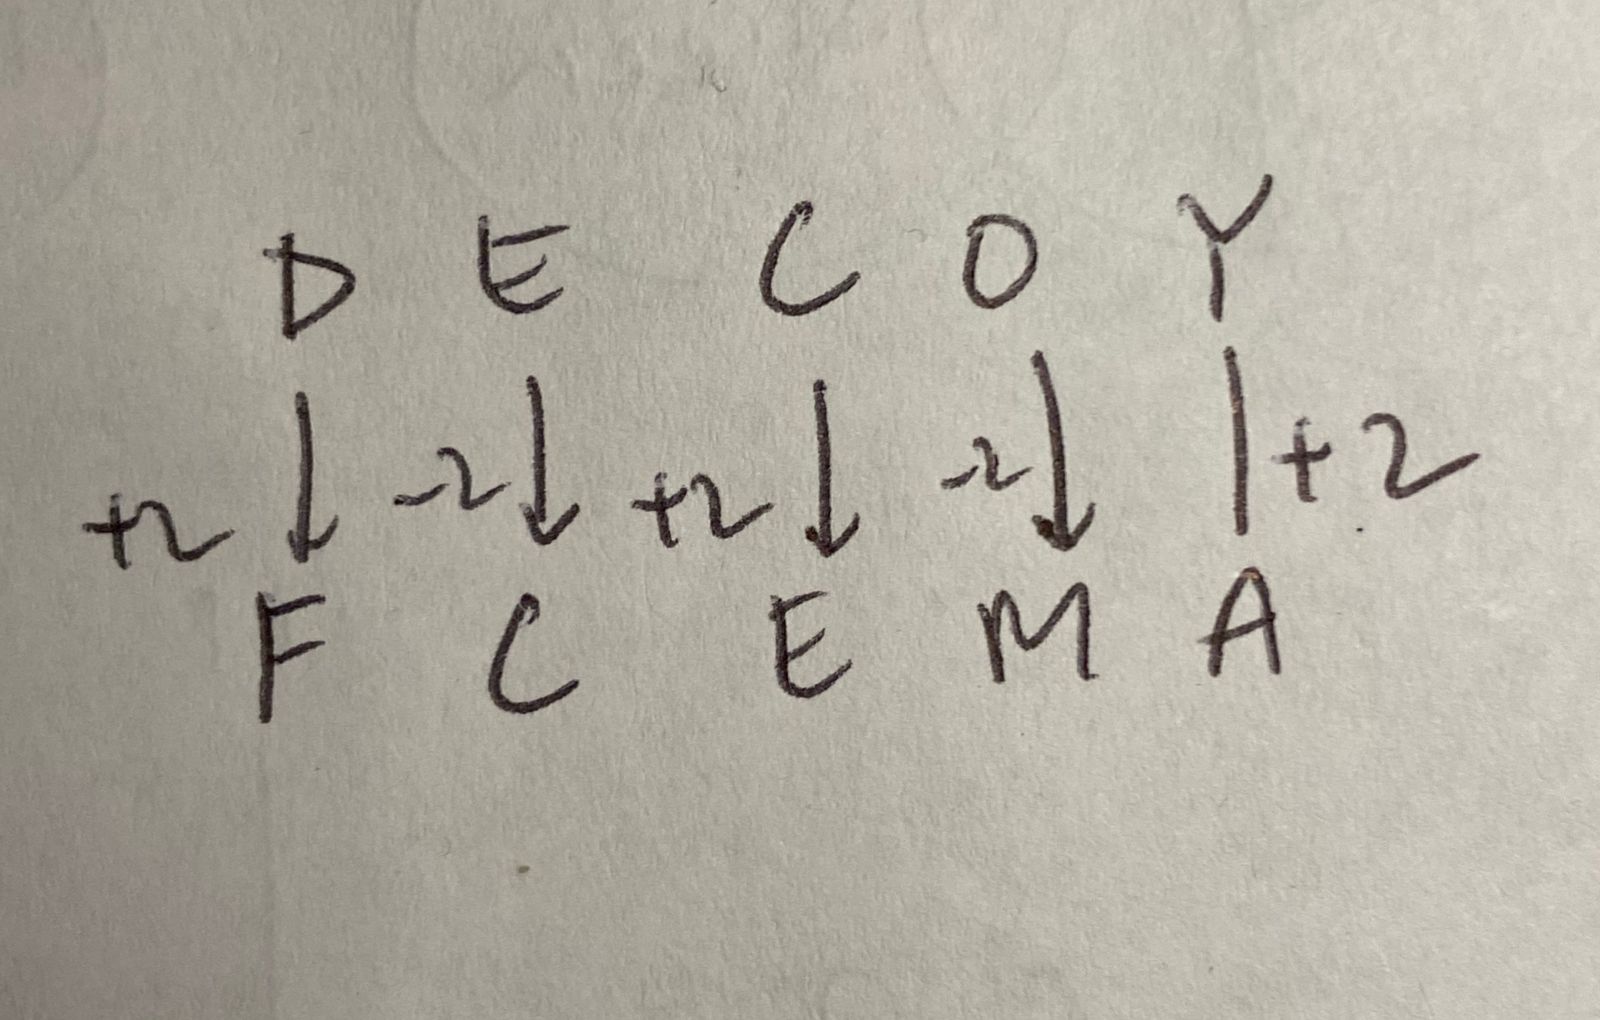 D E C O Y
+2 -2 +2 -2 +2
F C E M A